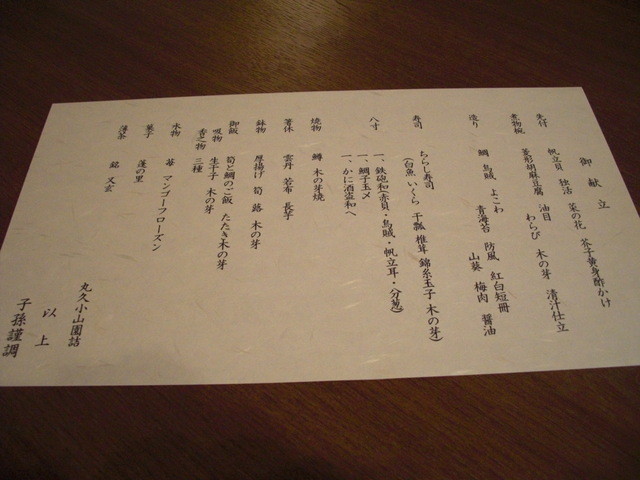 御献立
先付 帆立貝 独活 菜の花 芥子黄身酢かけ
煮物椀 菱形胡麻豆腐 油目 わらび 木の芽 清汁仕立
造り 鯛 烏賊 よこわ 青海苔 防風 紅白短冊
山葵 梅肉 醤油
寿司 ちらし寿司
(白魚 いくら 干瓢 椎茸 錦糸玉子 木の芽)
八寸 一、鉄砲和(赤貝・烏賊・帆立耳・分葱)
一、鯛子玉〆
一、かに酒盗和へ
焼物 鱒 木の芽焼
箸休 雲丹 若布 長芋
鉢物 厚揚げ 筍 蕗 木の芽
御飯 筍と鯛のご飯 たたき木の芽
吸物 生子子 木の芽
香之物 三種
水物 苺 マンゴーフローズン
菓子 蓬の里
薄茶 銘 又玄
丸久小山園詰
以上
子孫謹調